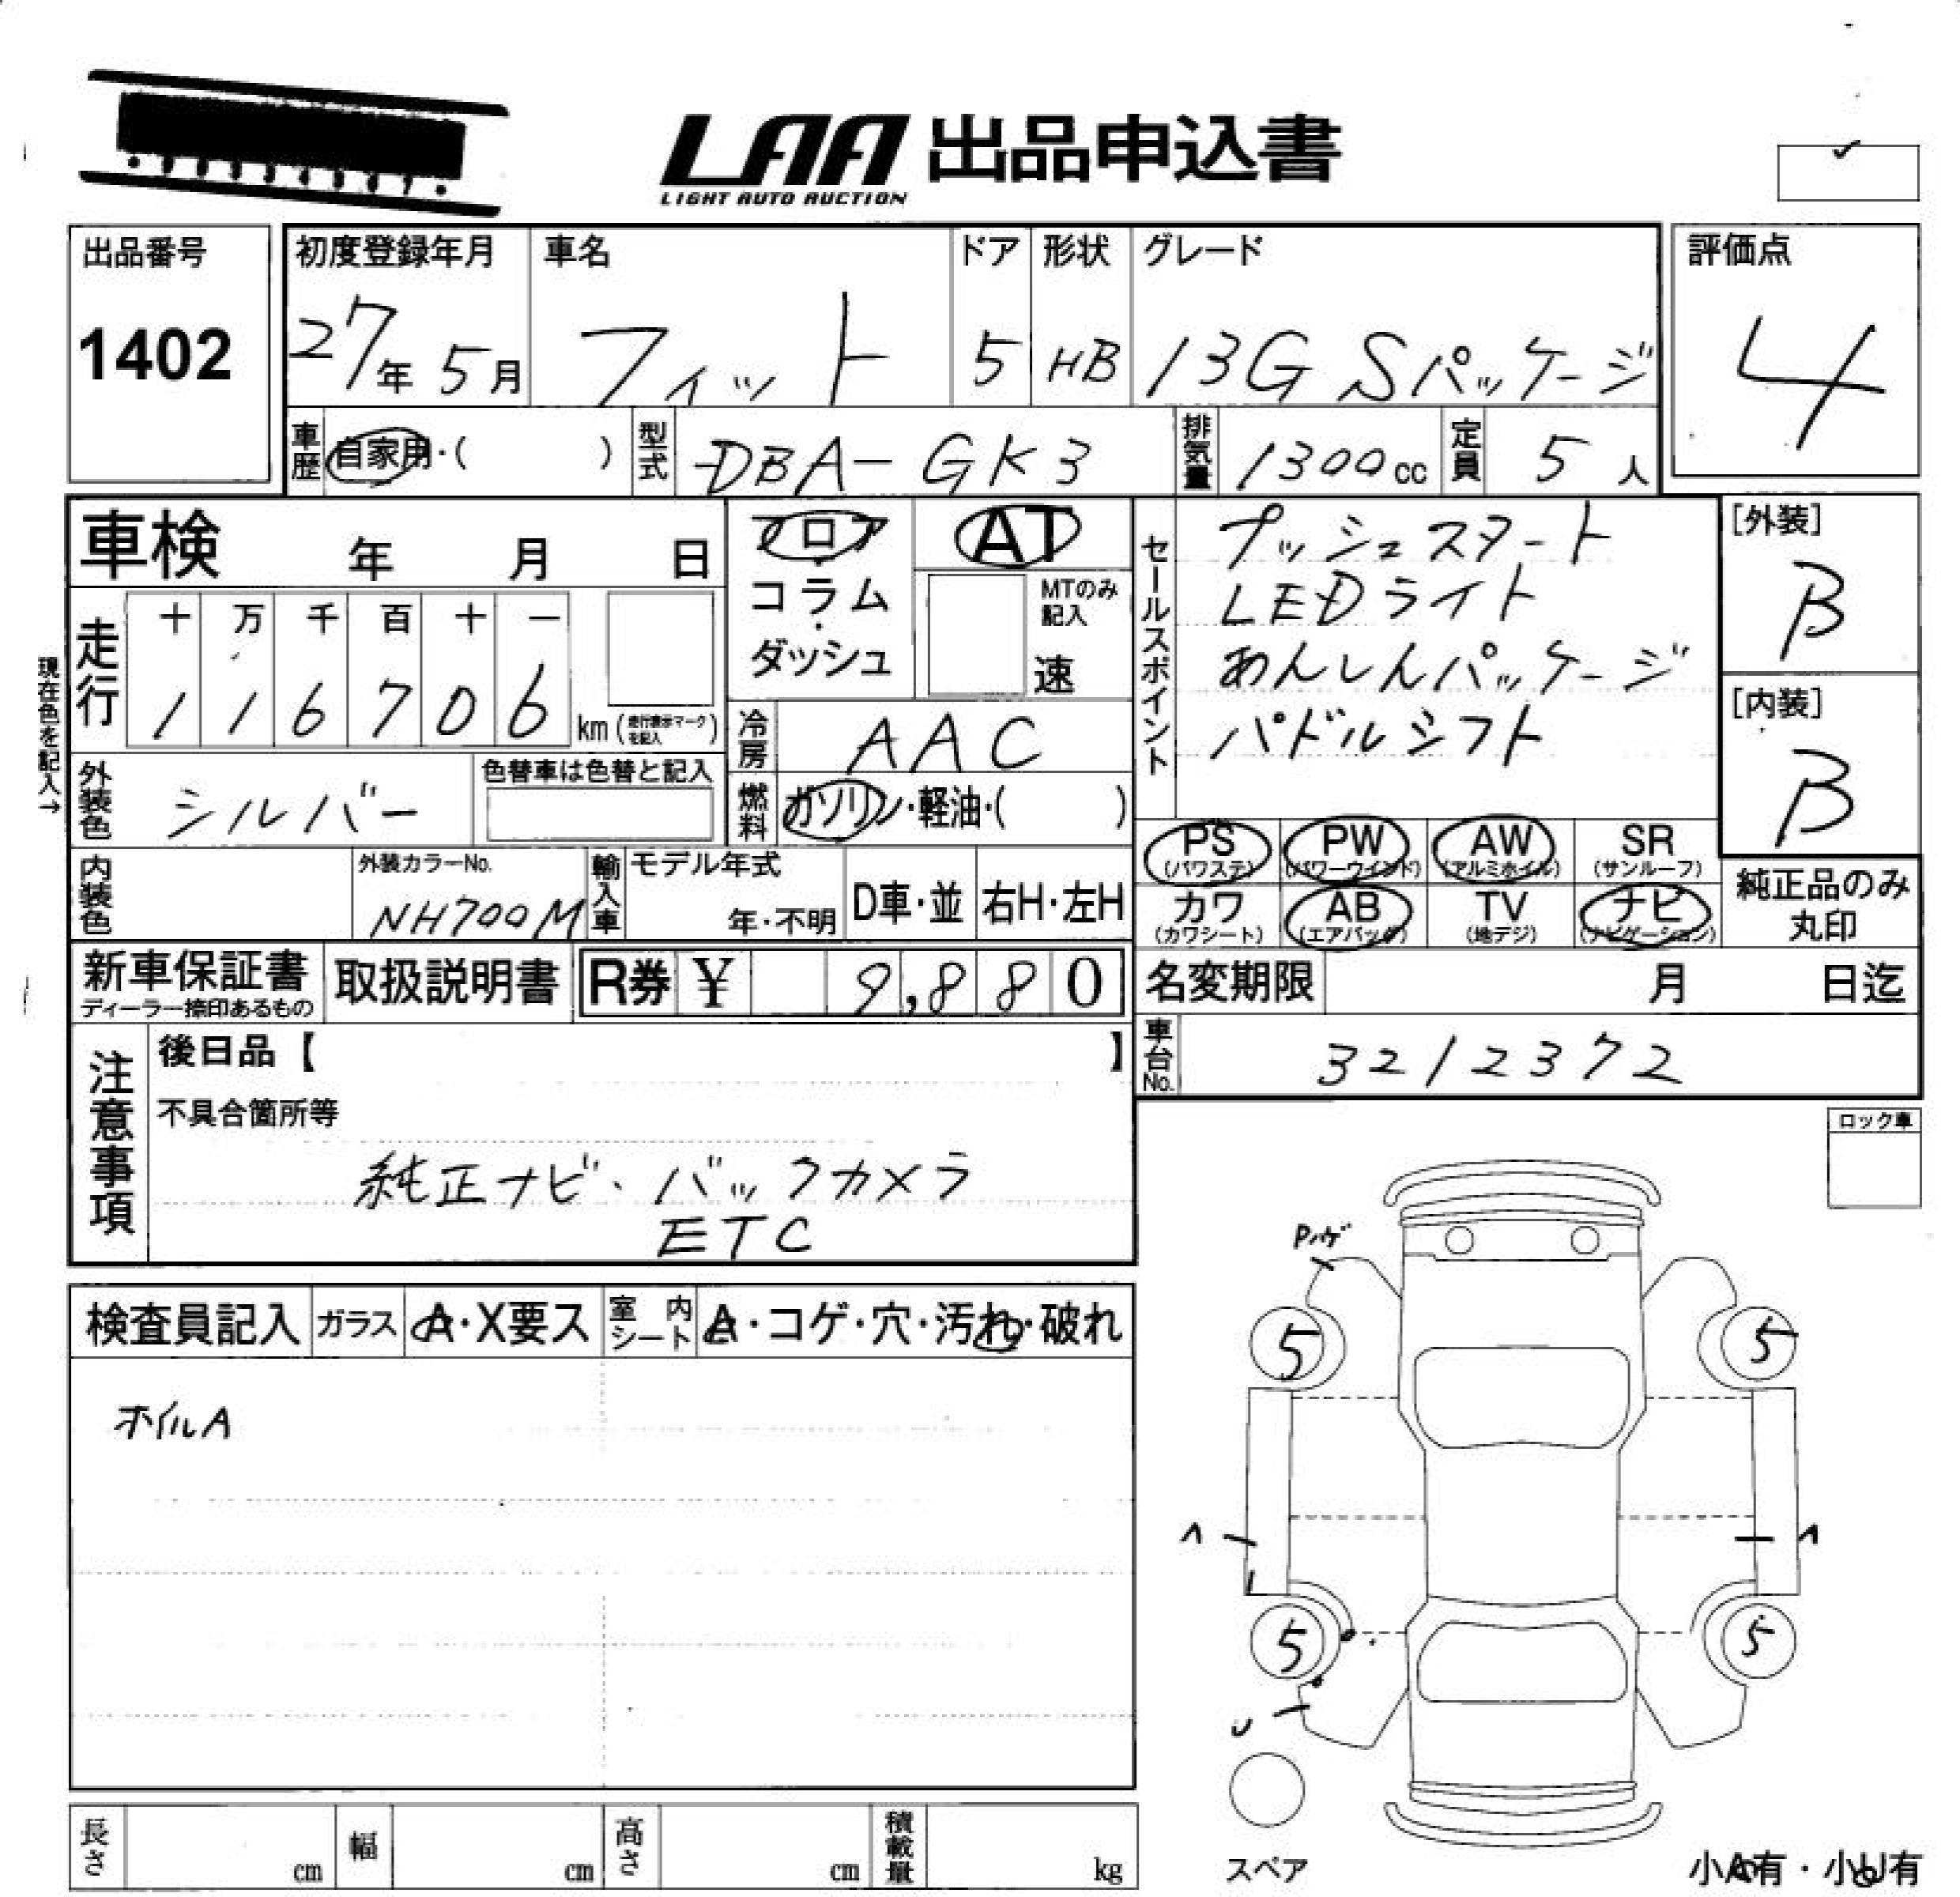 LAA 出品申込書
LIGHT AUTO AUCTION
出品番号
1402
初度登録年月
27年 5月
車名
フィット
ドア
5
形状
HB
グレード
13G Sパッケージ
評価点
4
車歴
自家用・( )
型式
DBA-GK3
排気量
1300cc
定員
5人
車検 年 月 日
走行
十 万 千 百 十 一
1 1 6 7 0 6
km(走行表示マークを記入)
現在色を記入→
外装色
シルバー
色替車は色替と記入
内装色
外装カラーNo.
NH700M
フロア
コラム
・
ダッシュ
AT
MTのみ
記入
速
冷房
AAC
燃料
ガソリン・軽油・( )
輸入車
モデル年式
年・不明
D車・並
右H・左H
セールスポイント
プッシュスタート
LEDライト
あんしんパッケージ
パドルシフト
[外装]
B
[内装]
B
PS
(パワステ)
PW
(パワーウインド)
AW
(アルミホイル)
SR
(サンルーフ)
カワ
(カワシート)
AB
(エアバッグ)
TV
(地デジ)
ナビ
(ナビゲーション)
純正品のみ
丸印
新車保証書
ディーラー捺印あるもの
取扱説明書
R券 ¥ 9,880
名変期限 月 日迄
車台No.
3212372
注意事項
後日品【 】
不具合箇所等
純正ナビ・バックカメラ
ETC
ロック車
検査員記入
ガラス
A・X要ス
室内
シート
A・コゲ・穴・汚れ・破れ
ホイルA
Pハゲ
5
5
5
5
U
スペア
長さ cm
幅 cm
高さ cm
積載量 kg
小A有・小U有